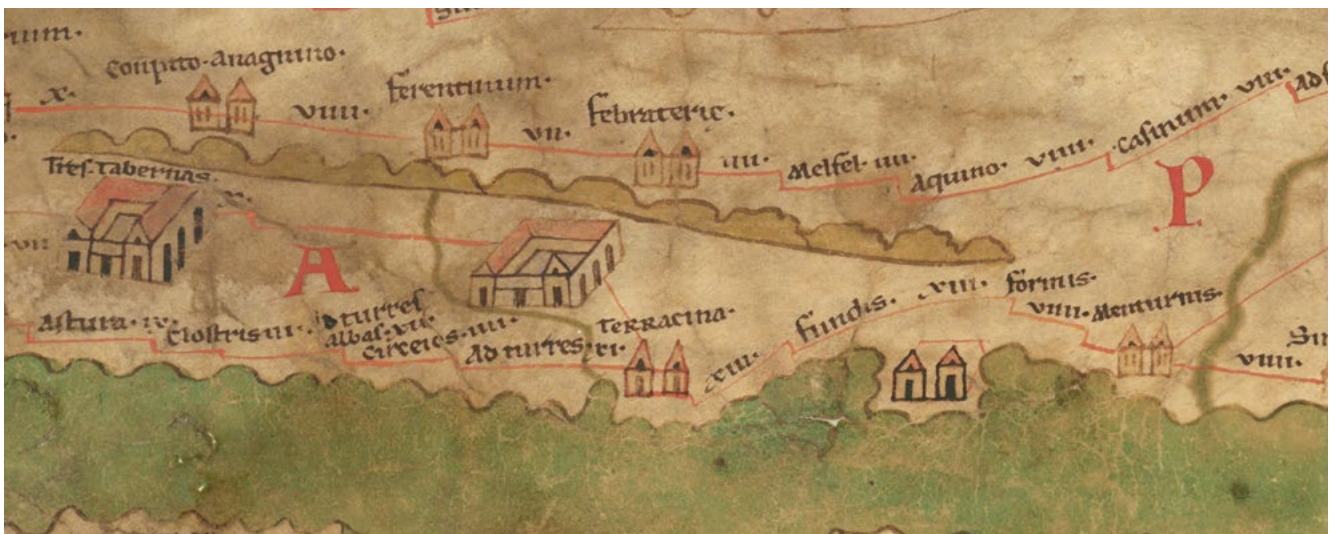 Coupito·anagnino·
ferentinum·
febraterie·
X·
VIIII·
VII·
IIII·
Melfel·IIII·
Aquino·
VIIII·
Casinum·
VIII·
Ad
Tres·Tabernas·
X·
P
VII
A
Astura·
Clostris·III·
turres
albas·VII·
Circeios·IIII·
Ad turres·
TERRACINA·
XIII·
fundis·
XIII·
formis·
VIIII·
Menturnis·
VIIII·